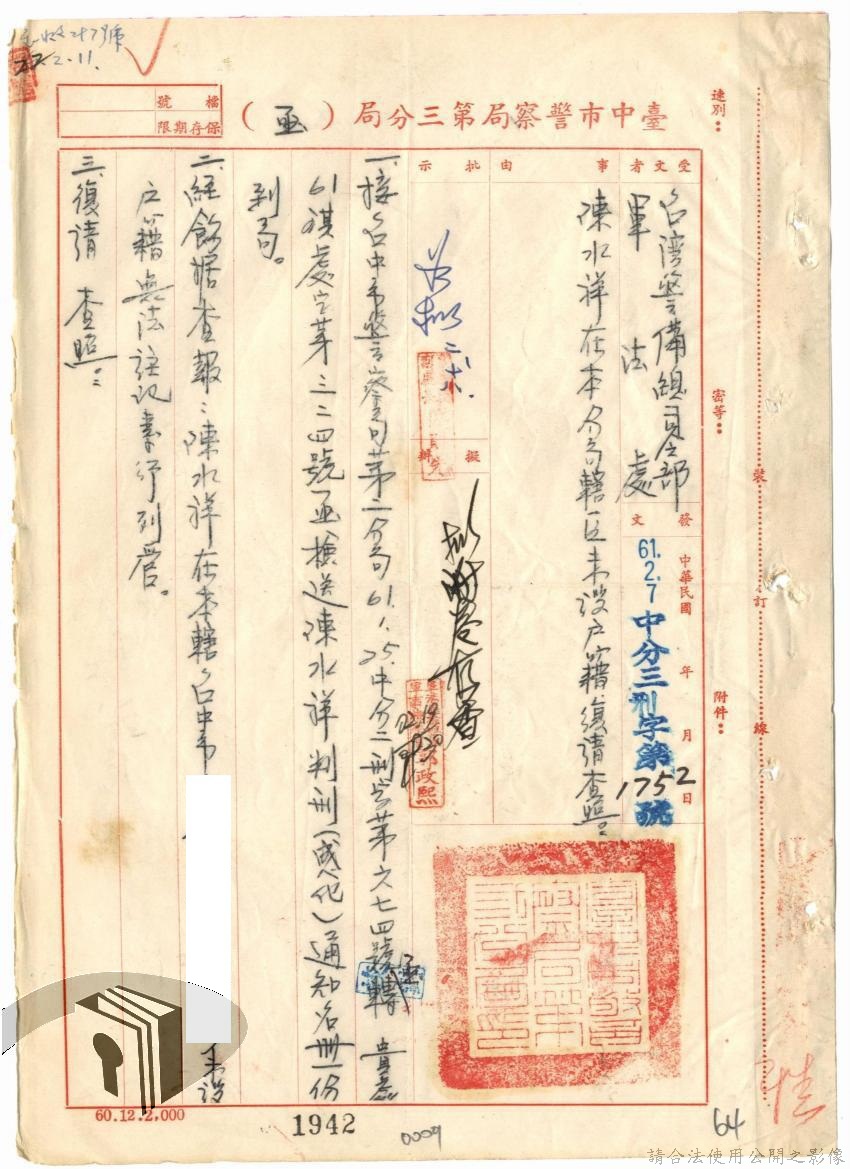 臺中市警察局第三分局(函)
檔號
保存期限
速別:
密等:
附件:
裝訂線
受文者
台灣警備總司令部
軍法處
發文
中華民國 年 月 日
61.2.7
中分三刑字第
1752
號
事由
陳水祥在本分局轄區未設戶籍,復請查照。
批示
擬辦
一、接台中市警察局第二分局61.1.25.中分二刑字第六七四號函轉 貴處
61 祺處字第三二四號函檢送陳水祥判刑(感化)通知名冊一份
到局。
二、經飭據查報:陳水祥在本轄台中市
未設
戶籍無法註記素行列管。
三、復請 查照。
60.12.2,000
1942
0009
64
請合法使用公開之影像